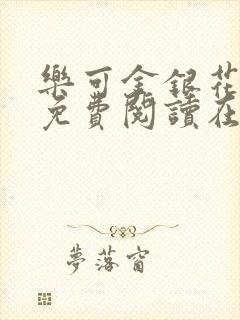 樂可金銀花
免費閱讀在
夢落窗